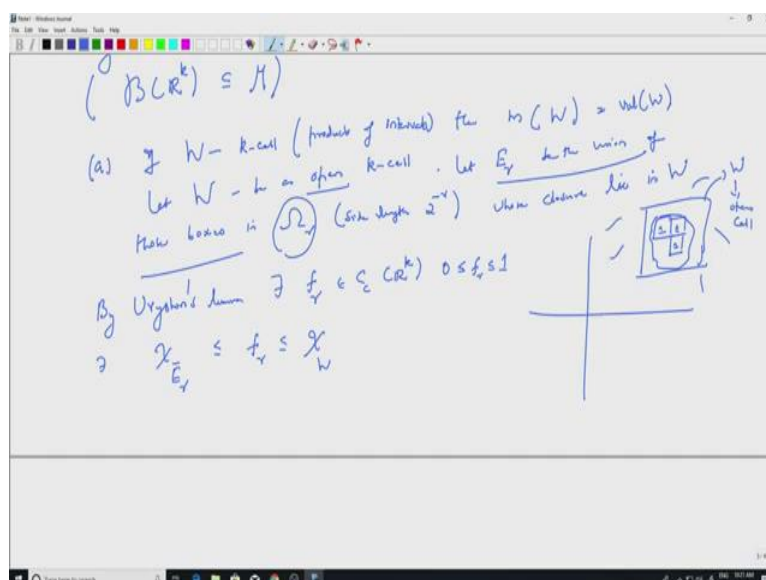 Note1 - Windows Journal
File Edit View Insert Actions Tools Help
( B(ℝ^k) ⊆ M )
(a) If W - k-cell (product of intervals) then m(W) = vol(W)
Let W - be an open k-cell. Let E_r be the union of
those boxes in Ω_r (side length 2^{-r}) whose closure lie in W
By Urysohn's lemma ∃ f_r ∈ C_c(ℝ^k) 0 ≤ f_r ≤ 1
∋ χ_{Ē_r} ≤ f_r ≤ χ_W
W
open
cell